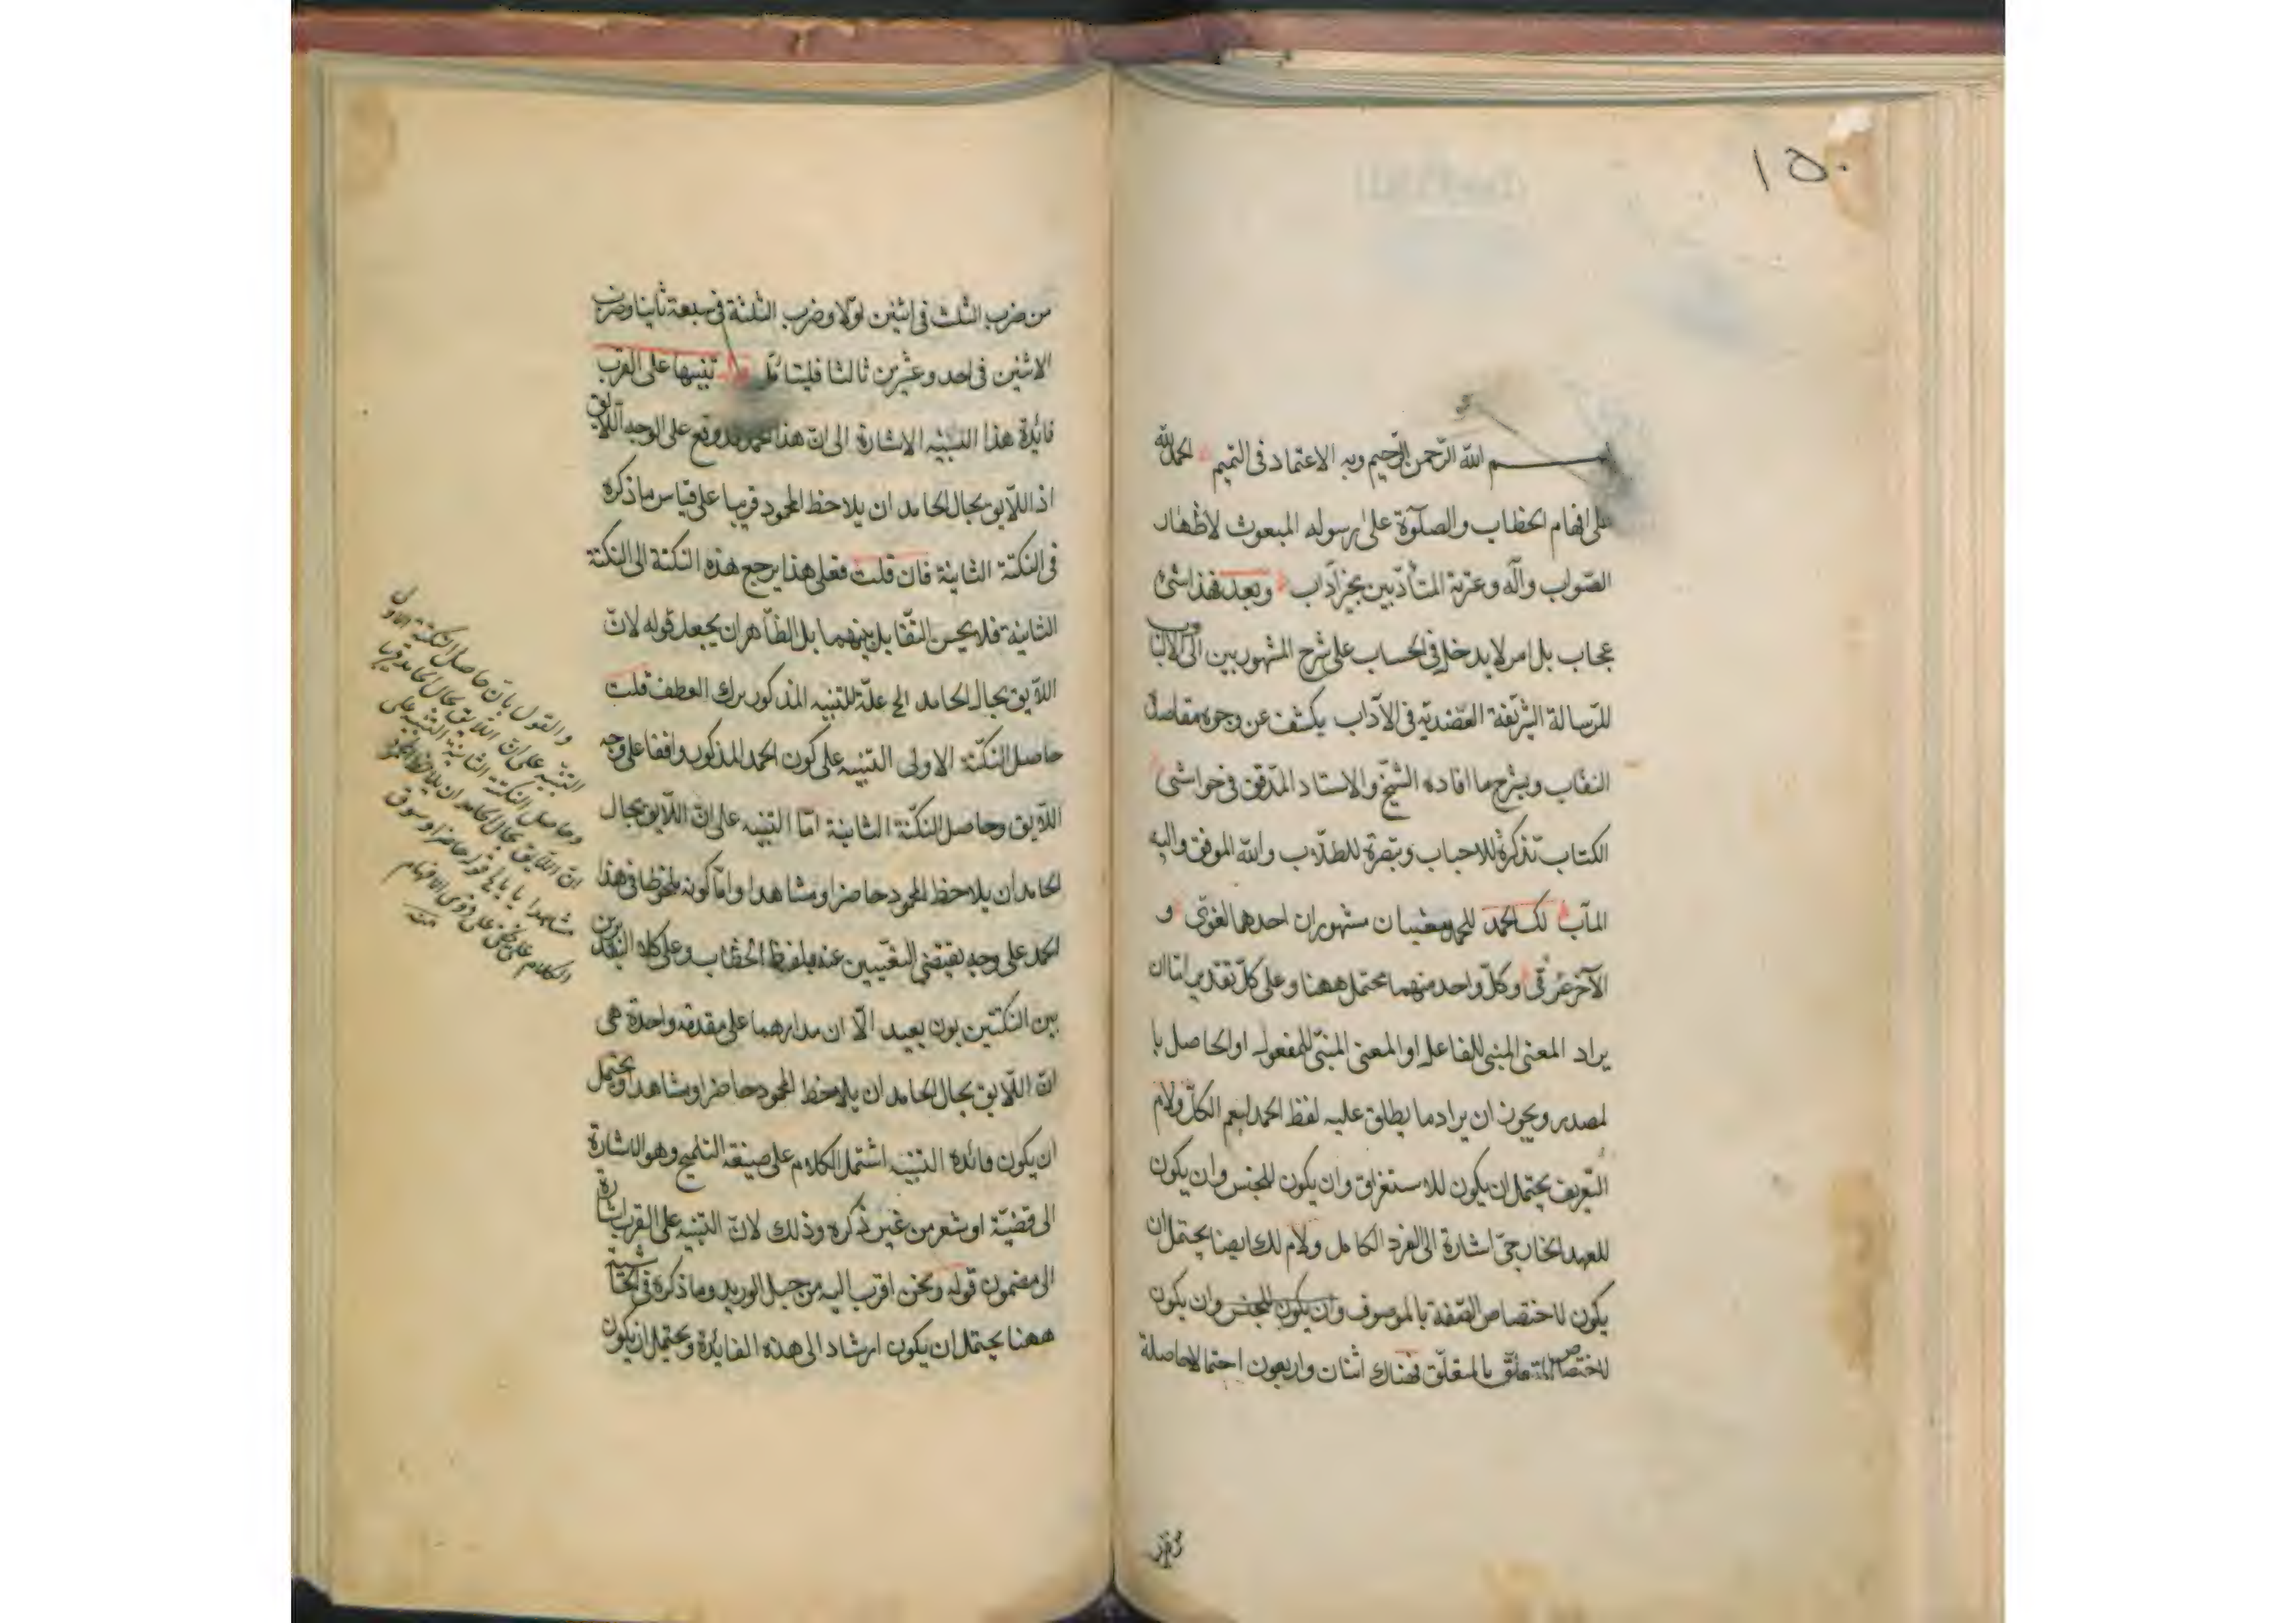 ١٥٠
بسم الله الرّحمن الرّحيم وبه الاعتماد فى التتميم الحمد لله
على افهام الخطاب والصلٰوة على رسوله المبعوث لاظهار
الصّواب وآله وعترته المتأدّبين بخير آداب وبعد فهذا شئ
عجاب بل امر لا يدخل فى الحساب على شرح المشهور بين اولى الالباب
للرّسالة الشريفة العضديّة فى الآداب يكشف عن وجوه مقاصده
النقاب ويشرح ما افاده الشيخ والاستاد المدقق فى حواشى
الكتاب تذكرة للاحباب وتبصرة للطلّاب والله الموفق واليه
المآب لك الحمد للحمد معنيان مشهوران احدهما لغوىّ و
الآخر عرفى وكلّ واحد منهما محتمل ههنا وعلى كلّ تقدير امّا ان
يراد المعنى المبنى للفاعل او المعنى المبنىّ للمفعول او الحاصل با
لمصدر ويجوز ان يراد ما يطلق عليه لفظ الحمد ليعم الكلّ ولام
التّعريف يحتمل ان يكون للاستغراق وان يكون للجنس وان يكون
للعهد الخارجىّ اشارة الى الفرد الكامل ولام لك ايضا يحتمل ان
يكون لاختصاص الصّفة بالموصوف وان يكون للجنس وان يكون
لاختصاص المتعلّق بالمتعلّق فهناك اثنان واربعون احتمالا حاصلة
من ضرب الثلث فى اثنين اوّلا وضرب الثلثة فى سبعة ثانيا وضرب
الاثنين فى احد وعشرين ثالثا فليتامّل تنبيها على القرب
فائدة هذا التنبيه الاشارة الى انّ هذا الحمد قد وقع على الوجه اللّايق
اذ اللّايق بحال الحامد ان يلاحظ المحمود قريبا على قياس ما ذكره
فى النكتة الثانية فان قلت فعلى هذا يرجع هذه النكتة الى النكتة
الثانية فلا يحسن التقابل بينهما بل الظاهر ان يجعل قوله لانّ
اللّايق بحال الحامد الخ علّة للتنبيه المذكور بترك العطف قلت
حاصل النكتة الاولى التنبيه على كون الحمد المذكور واقعا على وجه
اللّايق وحاصل النكتة الثانية امّا التنبيه على انّ اللّايق بحال
الحامد ان يلاحظ المحمود حاضرا ومشاهدا وامّا كونه ملحوظا فى هذا
الحمد على وجه يقتضى التعبير عنه بلفظ الخطاب وعلى كلا التقديرين
بين النكتتين بون بعيد الّا ان مدارهما على مقدمة واحدة هى
انّ اللّايق بحال الحامد ان يلاحظ المحمود حاضرا ومشاهدا ويحتمل
ان يكون فائدة التنبيه اشتمال الكلام على صنيعة التلميح وهو الاشارة
الى قضيّة او شعر من غير ذكره وذلك لانّ التنبيه على القرب اشارة
الى مضمون قوله ونحن اقرب اليه من حبل الوريد وما ذكره فى الحاشية
ههنا يحتمل ان يكون ارشاد الى هذه الفايدة ويحتمل ان يكون
والقول بانّ حاصل النكتة الاولى
التنبيه على انّ اللّايق بحال الحامد قريبا
وحاصل النكتة الثانية التنبيه على
انّ اللّايق بحال الحامد ان يلاحظ المحمود
مشاهدا حاضرا وسوق
الكلام على ذوى الافهام
منه